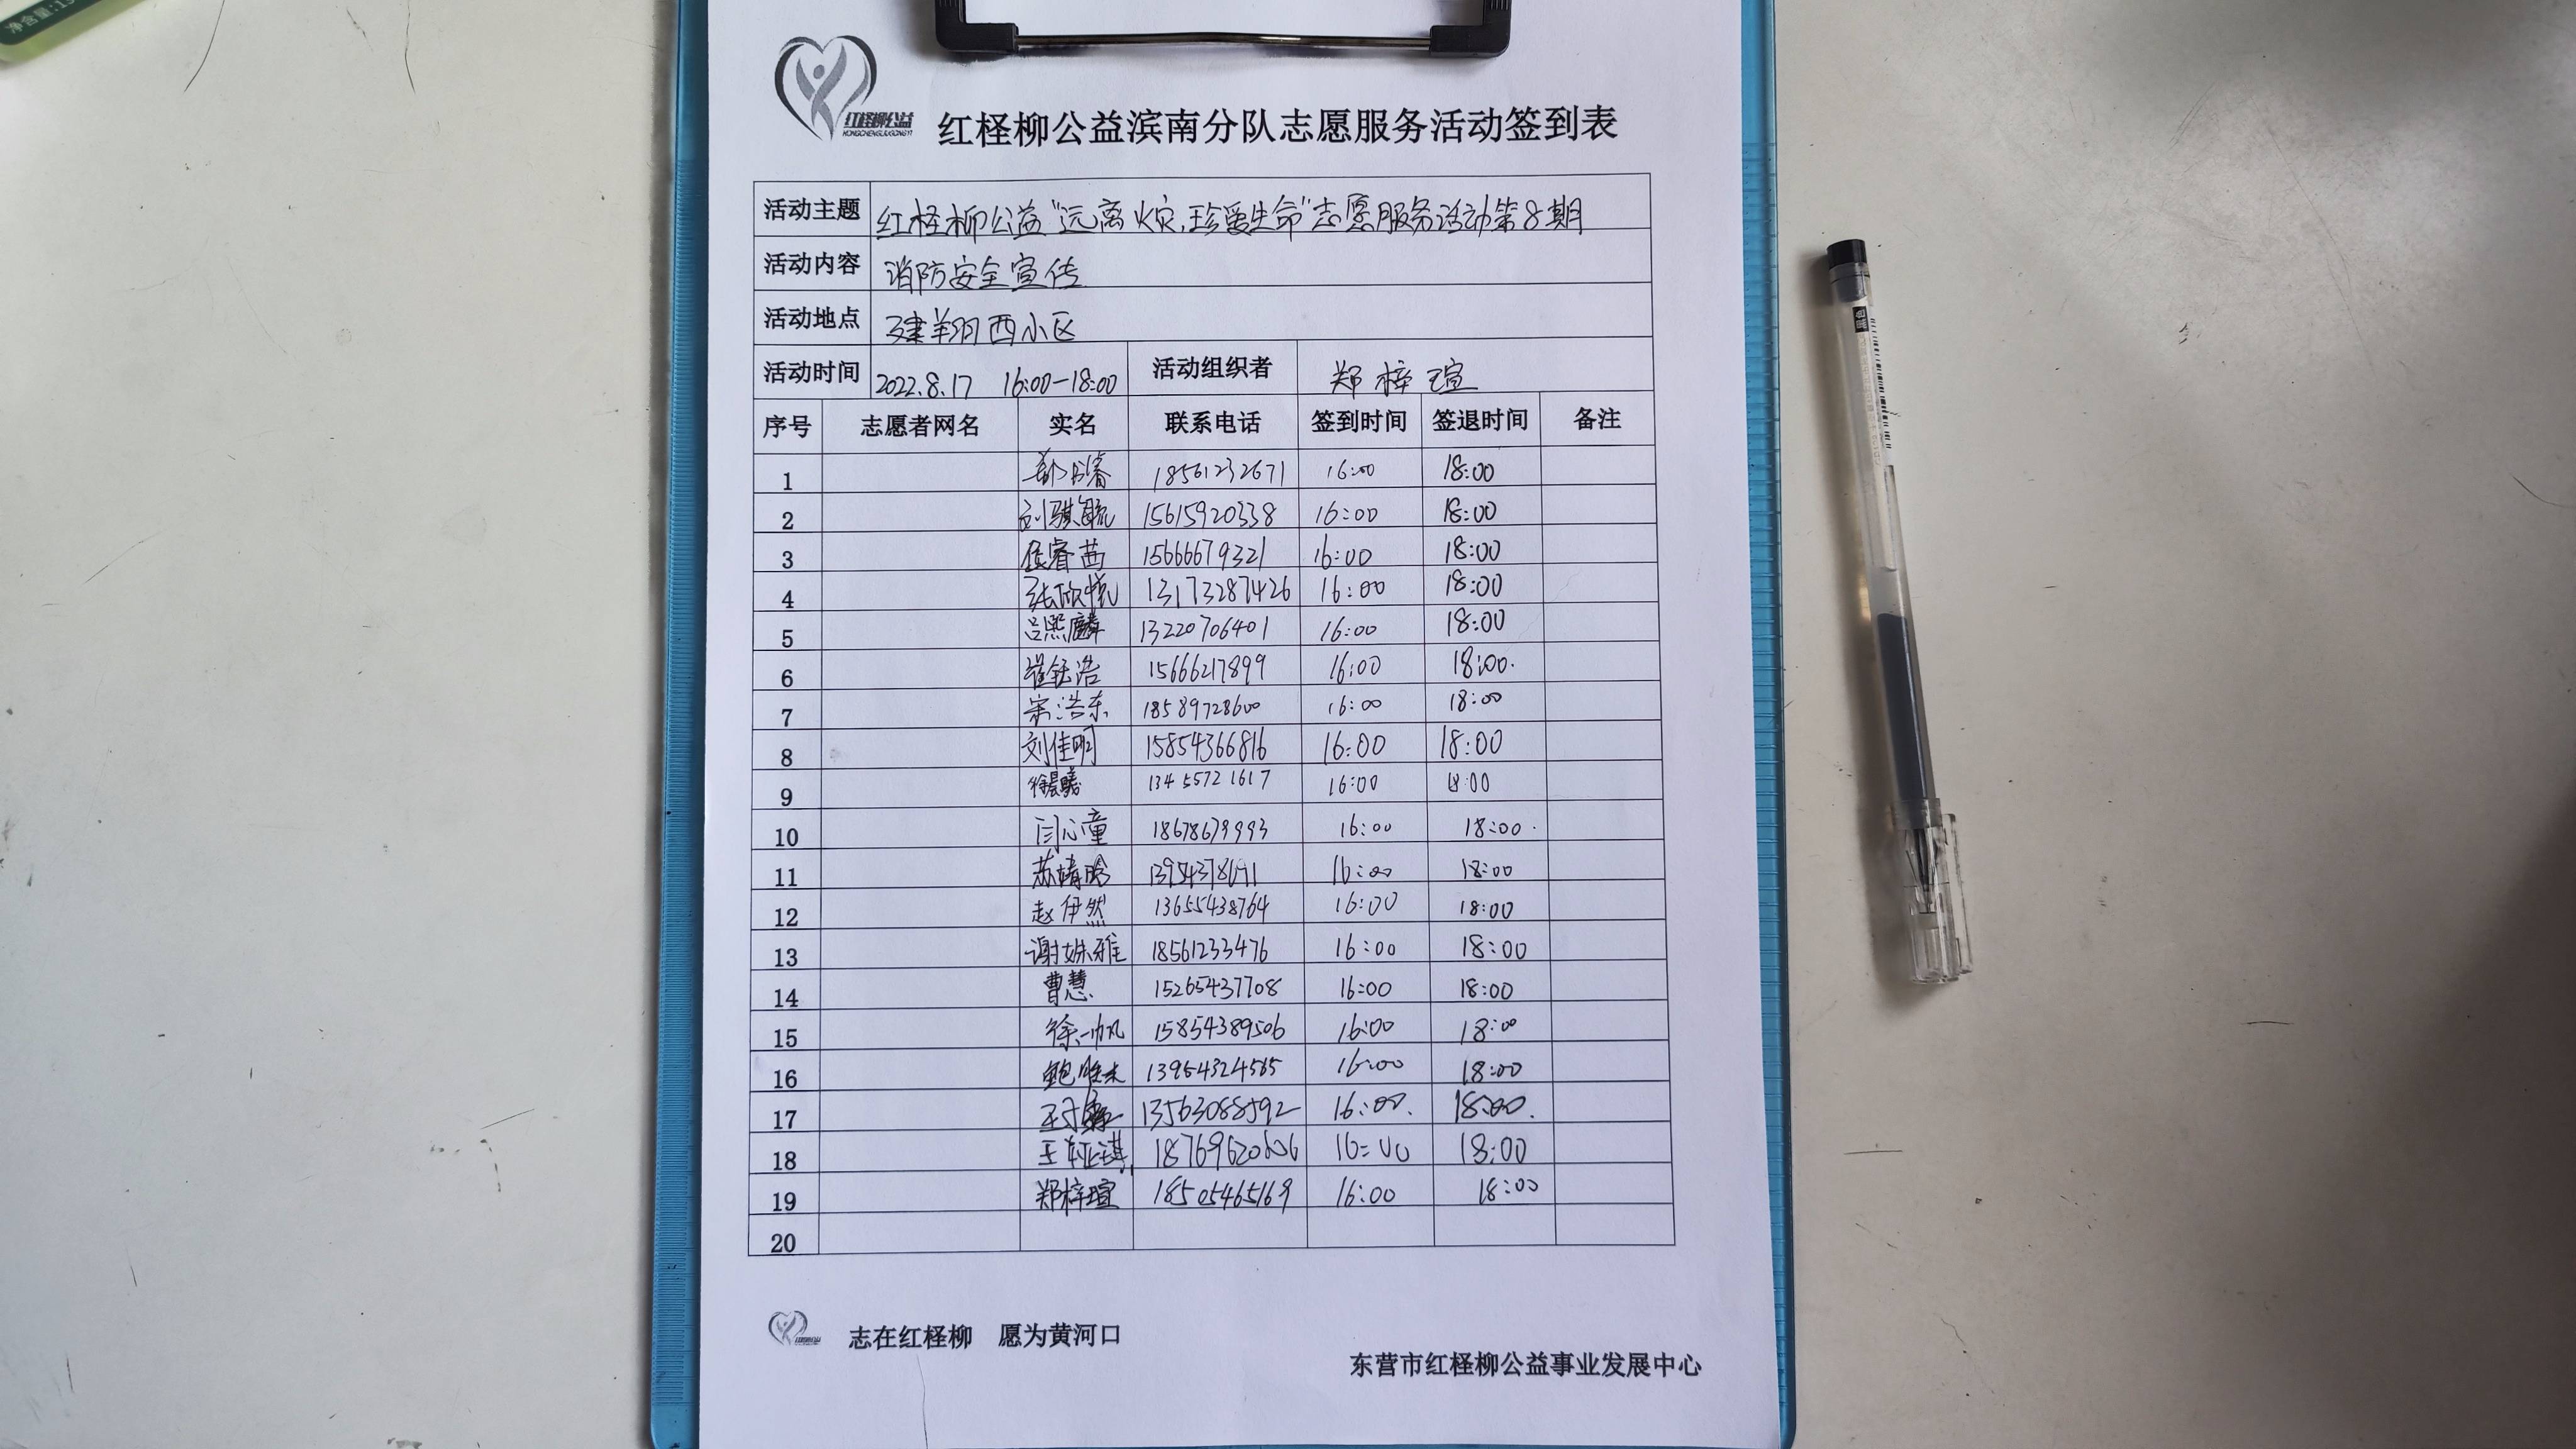 净含量:15
红柽柳公益
HONGCHENGLIUGONGYI
红柽柳公益滨南分队志愿服务活动签到表
活动主题 红柽柳公益"远离火灾,珍爱生命"志愿服务活动第8期
活动内容 消防安全宣传
活动地点 建翔西小区
活动时间 2022.8.17 16:00-18:00 活动组织者 郑梓瑄
序号 志愿者网名 实名 联系电话 签到时间 签退时间 备注
1 18561232671 16:00 18:00
2 刘骐毓 15615920338 16:00 18:00
3 侯睿茜 15666679321 16:00 18:00
4 张欣悦 13173287426 16:00 18:00
5 吕熙麟 13220706401 16:00 18:00
6 崔钰浩 15666217899 16:00 18:00.
7 宋浩东 18589728600 16:00 18:00
8 刘佳明 15854366816 16:00 18:00
9 徐晨曦 13455721617 16:00 18:00
10 闫心童 18678679993 16:00 18:00.
11 苏靖晗 16:00 18:00
12 赵伊然 13655438764 16:00 18:00
13 谢姝雅 18561233476 16:00 18:00
14 曹慧 15265437708 16:00 18:00
15 徐一帆 15854389506 16:00 18:00
16 13954324585 16:00 18:00
17 13563088592 16:00. 18:00.
18 16:00 18:00
19 郑梓瑄 18505465169 16:00 18:00
20
志在红柽柳 愿为黄河口
东营市红柽柳公益事业发展中心